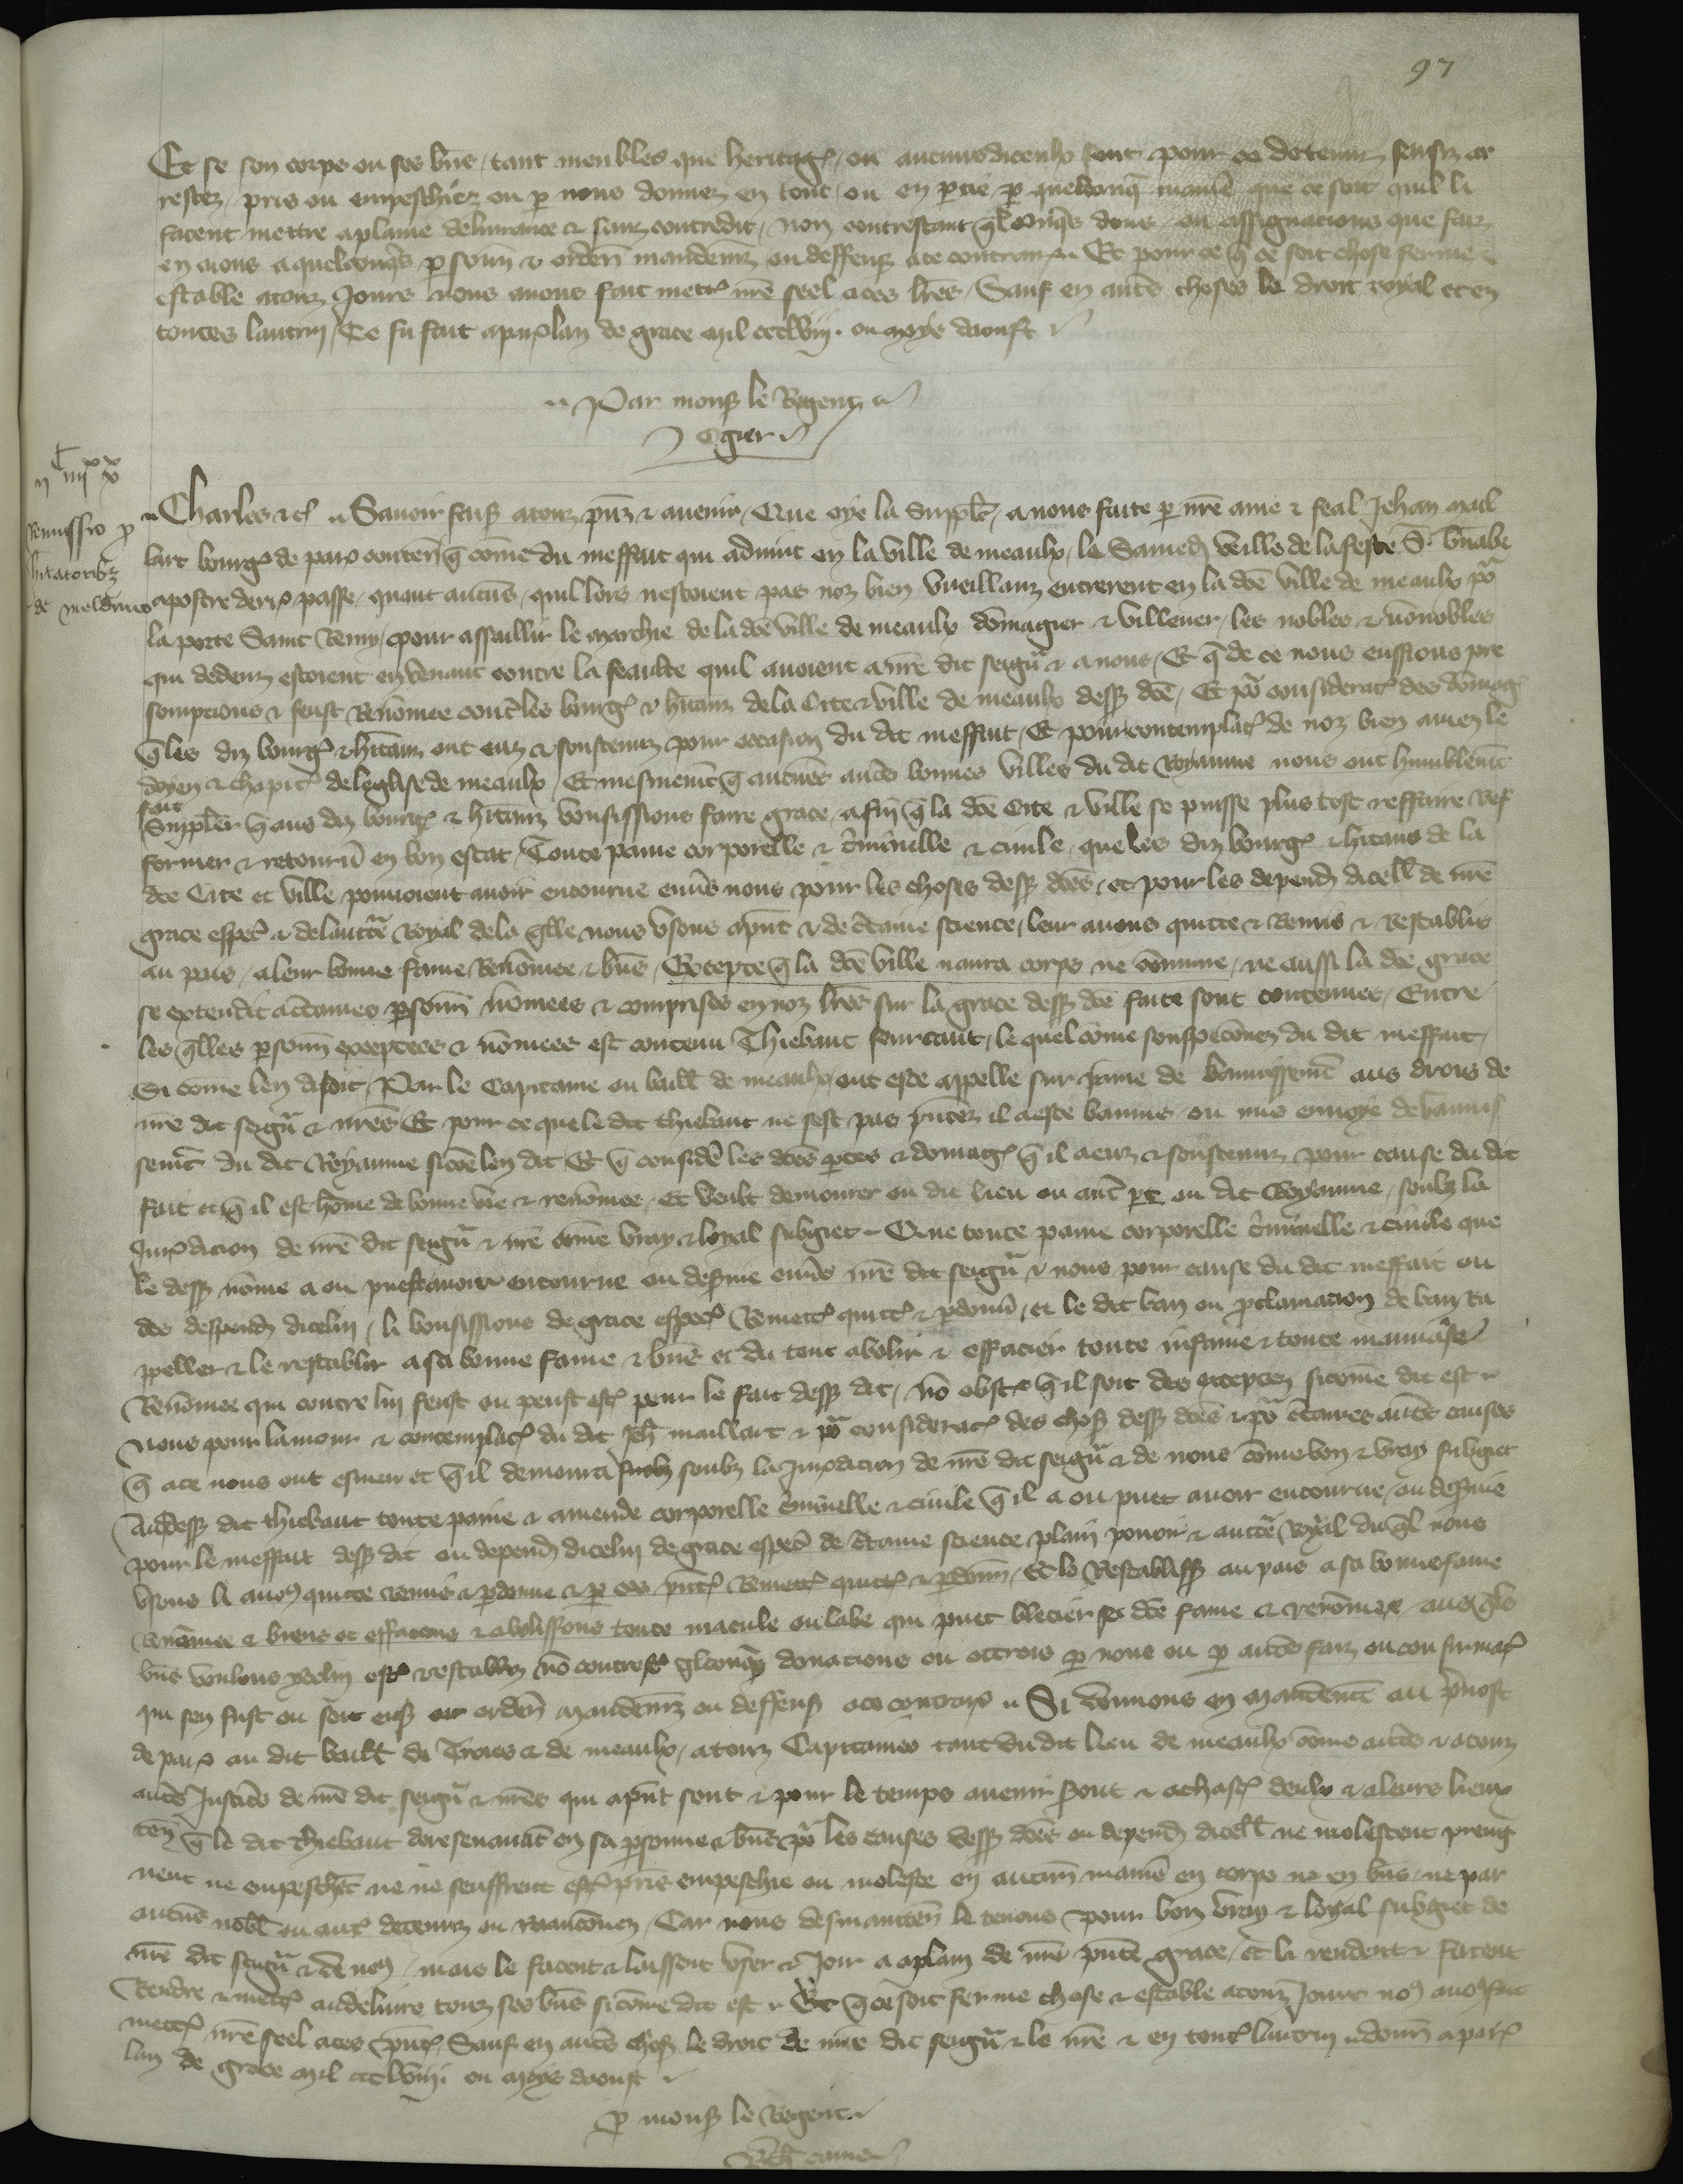 97
Et se son corps ou ses bñs tant meubles que heritages ou aucuns diceulx sont pour ce detenuz saisiz ar
restez pris ou empeschiez ou p nous donnez en tout ou en ptie p quelconq̃ maniẽ que ce soit quil li
facent mettre a plaine deliurance & sanz contredit non contrestant dons ou assignacions que faiz
en aions a quelconq̃s psonñ & orden̄ mandemẽz ou deffenses a ce contraires Et pour ce q̃ ce soit chose ferme &
estable a touz Jours nous auons fait metre nr̃e seel a ces lr̃es Sauf en autres choses le droit royal et en
toutes lautrui Ce fu fait a paris lan de grace mil ccclviij. ou moys daoust
Par mons le Regent
Ogier
Remissio p
hitatoribz
de meldnus
Charles &c Sauoir faisons a touz pñz & auenir Que oye la supplic a nous faite p nr̃e ame & feal Jehan mail
lart bourgois de paris contenant q̃ cõme du meffait qui aduint en la ville de meaulx le Samedi veille de la feste S. bñabe
apostre derr passe quant aucuns quil lors nestoient pas noz bien vueillanz entrerent en la dc̃e ville de meaulx p̃
la porte Saint Remy pour assaillir le marchie de la dc̃e ville de meaulx dõmagier & villener les nobles & nõnobles
qui dedenz estoient en venant contre la feaulte quil auoient a nr̃e dit seigñ & a nous Et q̃ de ce nous eussions pre
sompcions & feust Renõmee cont̃ les bourgois & hitanz de la Cite & ville de meaulx dess dc̃e Et p̃ consideracion des dõmages
q̃ les diz bourgois & hitanz ont euz & soustenuz pour occasion du dit meffait Et pour contemplacion de noz bien amez le
doyen & chapitre de leglise de meaulx Et mesmemẽt q̃ aucunes autres bonnes villes du dit Royaume nous ont humblemẽt
fait
supplier q̃ aus diz bourgois & hitanz voulsissions faire grace afin q̃ la dc̃e Cite & ville se puisse plus tost reffaire Ref
former & retourñ en bon estat Toute paine corporelle & c̃iminelle & ciuile que les diz bourgois & hitans de la
dc̃e Cite et ville pouuoient auoir encourue enuers nous pour les choses dess dc̃es et pour les depend dicell de nr̃e
grace especial & de lauctorite Royal de la q̃lle nous vsons a pñt & de c̃taine science leur auons quitte & Remis & Restablis
au pais a leur bonne fame Renõmee & bñs Excepte q̃ la dc̃e ville naura corps ne cõmune ne aussi la dc̃e grace
se extendit a c̃taines psonñ nõmees & comprises en noz lr̃es sur la grace dess dc̃e faite sont contenues Entre
les q̃lles psonñ exceptees & nõmees est contenu Thiebaut fourcaut le quel cõme souspeconnez du dit meffait
Si cõme len disoit Par le Capitaine ou baill de meaulx ont este appelle sur paine de bannissemẽt aus drois de
nr̃e dit seigñ & nr̃es Et pour ce que le dit thiebaut ne sest pas pñtez il a este bannis ou mis en voye de bannis
semẽt du dit Royaume si cõe len dit Et q̃ considere les dc̃es ptes & domages q̃ il a euz & soustenuz pour cause du dit
fait et q̃ il est hõme de bonne vie & renõmee Et veult demourer ou dit lieu ou autre pt ou dit Royaume soubz la
Jurisdicion de nr̃e dit seigñ & nr̃e cõme vray & loyal subgiet Que toute paine corporelle c̃iminelle & ciuile que
le dess nõme a ou puest auoir encourue ou desseruie enuers nr̃e dit seigñ & nous pour cause du dit meffait ou
des despend dicelui li voulsissions de grace especial Remettre quitter & pdonñ et le dit ban ou pclamacion de ban ra
ppeller & le restablir a sa bonne fame & bñs et du tout abolir & effacier toute infame & toute mauuaise
Renõmee qui contre lui feust ou peust estre pour le fait dess dit nõ obst q̃ il soit des exceptez si cõme dit est
Nous pour lamour & contemplacion du dit Jeh maillart & p̃ consideracion des choses dess dc̃es & p̃ c̃taines autres causes
q̃ a ce nous ont esmeu et q̃ il demoura soubz la Jurisdicion de nr̃e dit seigñ & de nous cõme bon & vray subgiet
Au dess dit thiebaut toute paine & amende corporelle c̃iminelle & ciuile q̃ il a ou puet auoir encourue ou desseruie
pour le meffait dess dit ou depend dicelui de grace especial de c̃taine science plain pouoir & auctorite Royal du q̃l nous
vsons li auons quitte remis & pdonne & p ces pñtes Remettons quittons & pdonnons Et le Restablissons au pais a sa bonne fame
Renõmee & biens et effacons & abolissons toute macule ou labe qui puet blecier sa dc̃e fame & renõmee aus q̃ls
bñs voulons ycelui estre restabliz nõ contrest q̃lconq̃s donacions ou ottrois p nous ou p autres faiz ou confirmac
qui sen fust ou soit ensi orden̄ mandemẽz ou deffenses a ce contraires Si donnons en mandemẽt au p̃uost
de paris au dit baill de Troies & de meaulx a touz Capitaines tant du dit lieu de meaulx cõme autres & a touz
autres Justiciers de nr̃e dit seigñ & nr̃es qui a pñt sont & pour le temps auenir seront & a chascun deulx & a leurs lieux
ten q̃ le dit thiebaut doresenauãt en sa psonne & bñs p̃ les causes dess dc̃es ou depend dicell ne molestent preng
nent ne empeschẽt ne ne seuffrent estre pris empeschie ou moleste en aucune maniẽ en corps ne en bñs ne par
aucuns nobl ou autres detenuz ou Raancõnez Car nous desmaintenãt le tenons pour bon vray & loyal subgiet de
nr̃e dit seigñ & de nous mais le facent & laissent vser & Joir a plain de nr̃e pñte grace Et li rendent & facent
Rendre & mettre au deliure touz ses bñs si cõme dit est Et q̃ ce soit ferme chose & estable a touz Jours nous auons fait
mettre nr̃e seel a ces pñtes Sauf en autres choses le droit de nr̃e dit seigñ & le nr̃e & en toutes lautrui donñ a paris
lan de grace mil ccclviij. ou moys daoust
p mons le Regent